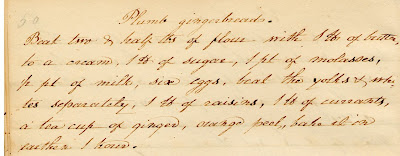 Plumb gingerbread.
Beat two & half lbs of flour with 1 lb of butter,
to a cream, 1 lb of sugar, 1 pt of molasses,
pt of milk, six eggs, beat the yolks & whi-
tes separately, 1 lb of raisins, 1 lb of currants,
a tea cup of ginger, orange peel, bake it on
earthen 1 hour.